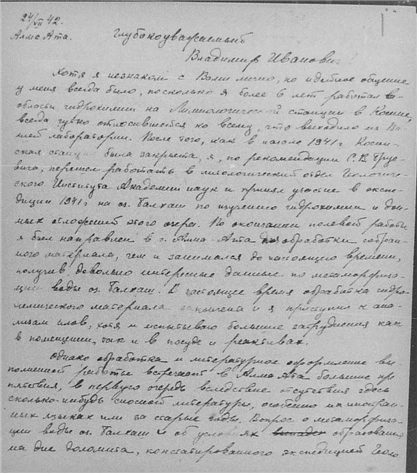 24/VII 42.
Алма Ата.
Глубокоуважаемый
Владимир Иванович!
Хотя я незнаком с Вами лично, но идейное общение
у меня всегда было, поскольку я более 8 лет работал в
области гидрохимии на Лимнологической станции в Косине,
всегда чутко относившейся ко всему, что выходило из Ва-
шей лаборатории. После того, как в начале 1941 г. Косин-
ская станция была закрыта, я, по рекомендации С.В.
перешел работать в литологический отдел Геологиче-
ского Института Академии наук и принял участие в экспе-
диции 1941 г. на оз. Балхаш по изучению гидрохимии и дон-
ных отложений этого озера. По окончании полевой работы
я был направлен в г. Алма Ата обработки собран-
ного материала, чем и занимался до настоящего времени,
получив довольно интересные данные по метаморфиза-
ции воды оз. Балхаш. В настоящее время обработка гидро-
химического материала закончена и я приступил к ана-
лизам илов, хотя и испытываю большие затруднения как
в помещении, так и в посуде и реактивах.
Однако обработка и литературное оформление вы-
полненной работы встречают в Алма Ата большие пре-
пятствия, в первую очередь вследствие отсутствия здесь
сколько-нибудь сносной литературы, особенно на иностран-
ных языках или за старые годы. Вопрос о метаморфиза-
ции воды оз. Балхаш и об условиях образования
на дне доломита, констатированного экспедицией